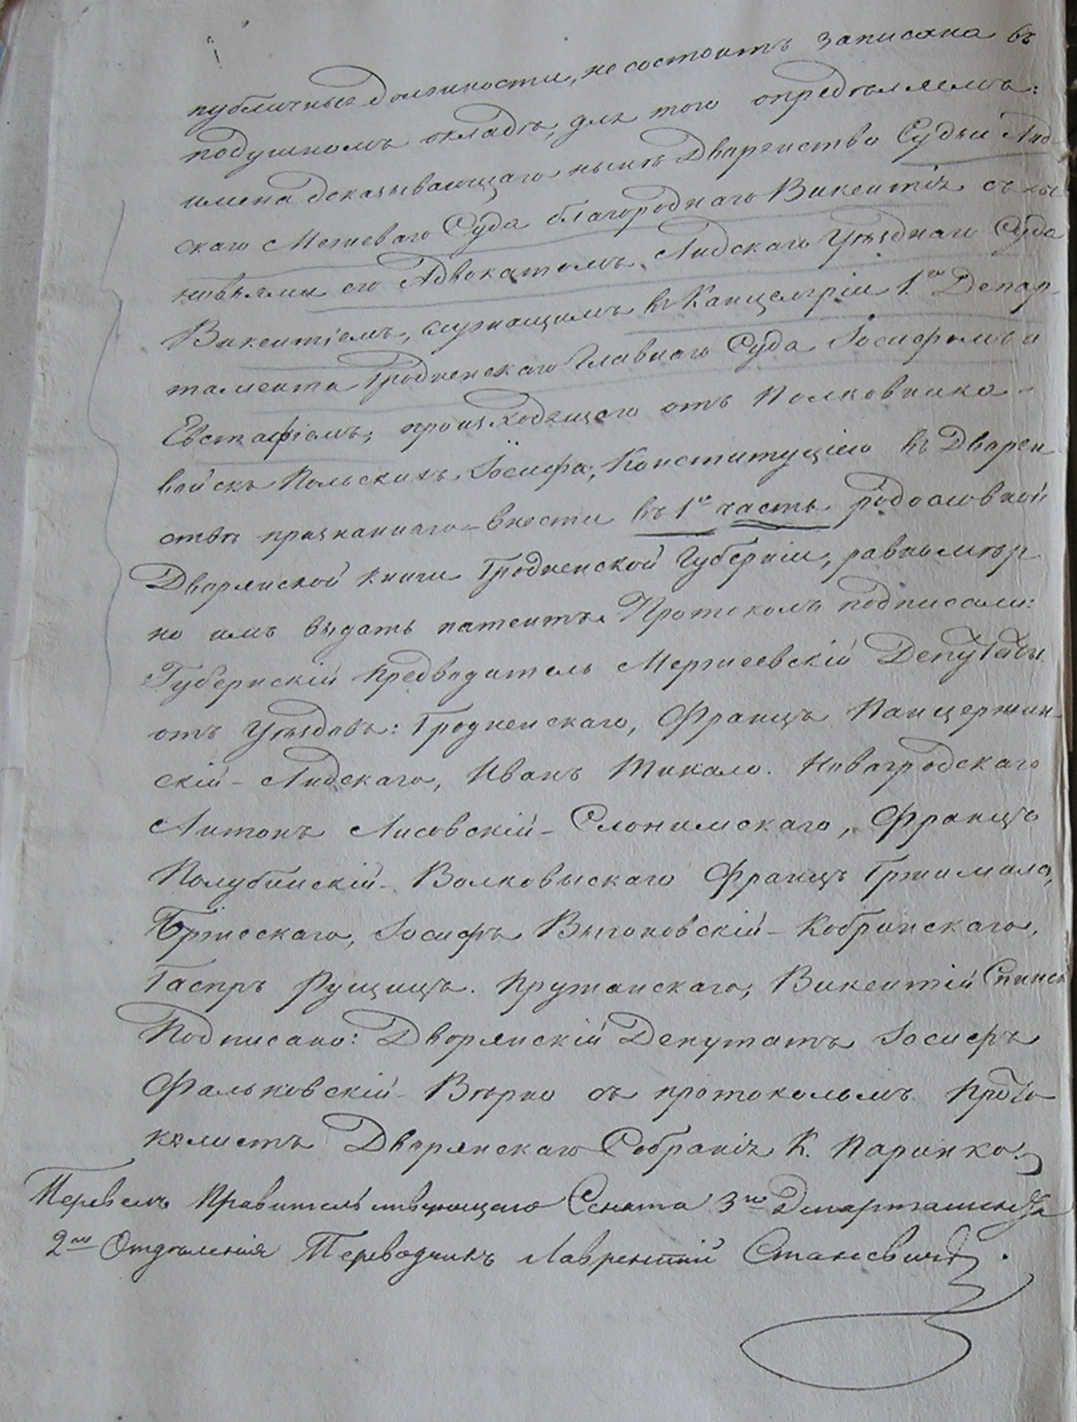 публичные должности, не состоитъ записана въ
подушномъ окладѣ, для того опредѣляемъ:
имена доказывающаго нынѣ Дворянство Судьи Лид-
скаго Межеваго Суда благороднаго Викентія съ сы-
новьями его Адвокатомъ Лидскаго Уѣзднаго Суда
Викентіемъ, служащимъ въ Канцеляріи 1го Депар-
тамента Гродненскаго Главнаго Суда Іосифомъ и
Евстафіемъ, происходящаго отъ Полковника
войскъ Польскихъ Іосифа, Конституціею въ Дворян-
ствѣ признаннаго внести въ 1ю часть родословной
Дворянской книги Гродненской Губерніи, равномѣр-
но имъ выдать патентъ. Протоколъ подписали:
Губернскій Предводитель Мержеевскій Депутаты
отъ Уѣздовъ: Гродненскаго, Францъ Панцержин-
скій - Лидскаго, Иванъ Шукало. Новогродскаго
Антонъ Лисовскій - Слонимскаго, Францъ
Полубинскій - Волковыскаго Францъ Гржимала,
Бржескаго, Іосифъ Выгоновскій - Кобринскаго,
Гаспръ Рущицъ. Пружанскаго, Викентій
Подписано: Дворянскій Депутатъ Іосифъ
Фальковскій - Вѣрно съ протоколомъ Прото-
колистъ Дворянскаго Собранія К. Паринко.
Перевелъ Правительствующаго Сената 3го Департамента
2го Отдѣленія Переводчикъ Лаврентій Станевичъ.